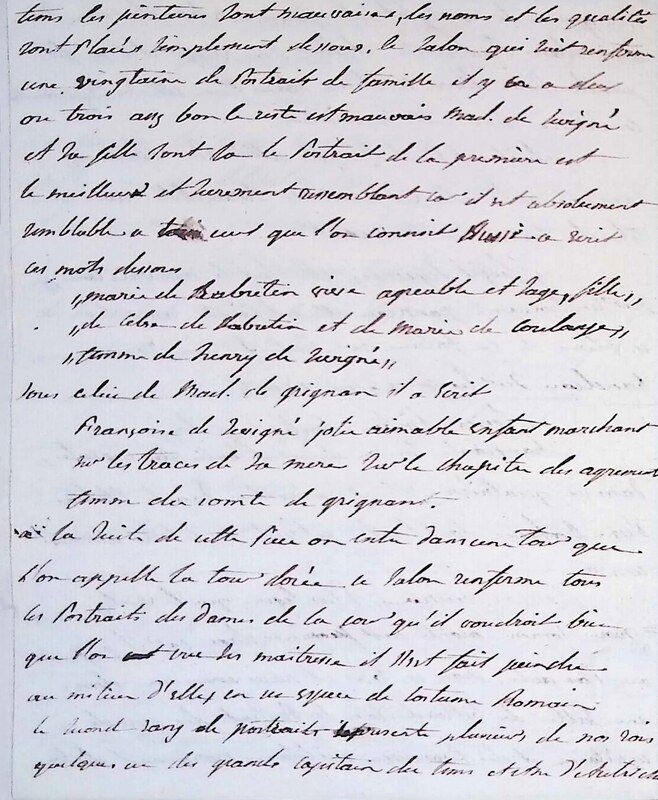 tems les peintures sont mauvaises, les noms et les qualités
sont placés simplement dessous. le salon qui suit renferme
une vingtaine de Portraits de famille il y en a deux
ou trois assez bon le reste est mauvais Mad. de Sevigné
et sa fille sont la le Portrait de la premiere est
le meilleur et surement ressemblant car il est absolument
semblable a tous ceux que l'on connoit Bussi a ecrit
ces mots dessous
"marie de Rabretin vive agreable et sage, fille"
"de Celse de Rabretin et de Marie de Coulange"
"femme de henry de Sevigné"
sous celui de Mad. de grignan il a ecrit
Françoise de Sevigné jolie aimable enfant marchant
sur les traces de sa mere sur le chapitre des agremens
femme du comte de grignan.
a la suite de cette piece on entre dans une tour que
l'on appelle la tour dorée ce salon renferme tous
les Portraits des dames de la cour qu'il voudroit bien
que l'on crut ses maitresse il s'est fait peindre
au milieu d'elles en espece de costume Romain
le second rang de portraits represente plusieurs de nos rois
quelques un des grands capitain du tems et